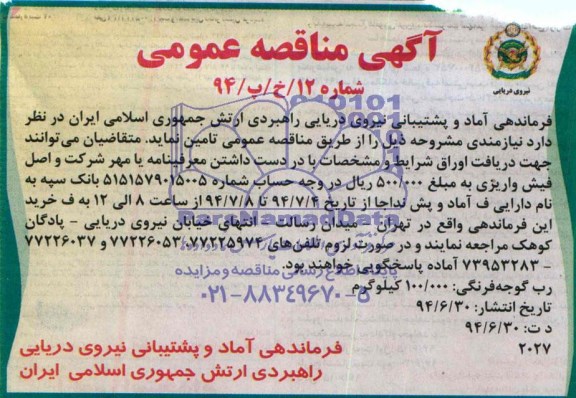 آگهی مناقصه عمومی
شماره ۱۲/خ/ب/۹۴
نیروی دریایی
فرماندهی آماد و پشتیبانی نیروی دریایی راهبردی ارتش جمهوری اسلامی ایران در نظر
دارد نیازمندی مشروحه ذیل را از طریق مناقصه عمومی تامین نماید. متقاضیان می‌توانند
جهت دریافت اوراق شرایط و مشخصات با در دست داشتن معرفینامه یا مهر شرکت و اصل
فیش واریزی به مبلغ ۵۰۰۰۰۰ ریال در وجه حساب شماره ۵۱۵۱۵۷۹۰۱۵۰۰۵ بانک سپه به
نام دارایی ف آماد و پش نداجا از تاریخ ۹۴/۷/۴ تا ۹۴/۷/۸ از ساعت ۸ الی ۱۲ به ف خرید
این فرماندهی واقع در تهران - میدان رسالت - انتهای خیابان نیروی دریایی - پادگان
کوهک مراجعه نمایند و در صورت لزوم تلفن‌های ۷۷۲۲۵۹۷۴، ۷۷۲۲۶۰۵۳ و ۷۷۲۲۶۰۳۷
- ۷۳۹۵۳۲۸۳ آماده پاسخگویی خواهند بود.
پایگاه اطلاع رسانی مناقصه و مزایده
رب گوجه‌فرنگی: ۱۰۰/۰۰۰ کیلوگرم
۰۲۱-۸۸۳۴۹۶۷۰-۵
تاریخ انتشار: ۹۴/۶/۳۰
د ت: ۹۴/۶/۳۰
۲۰۲۷
فرماندهی آماد و پشتیبانی نیروی دریایی
راهبردی ارتش جمهوری اسلامی ایران
ParsNamadData